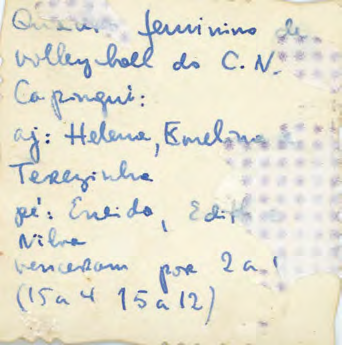 feminino de
volleyball do C.N.
Capingui:
aj: Helena, Emelina e
Terezinha
pé: Eneida, Edith e
Nilva
venceram por 2 a 1
(15 a 4 15 a 12)